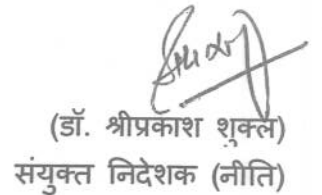 (डॉ. श्रीप्रकाश शुक्ल)
संयुक्त निदेशक (नीति)